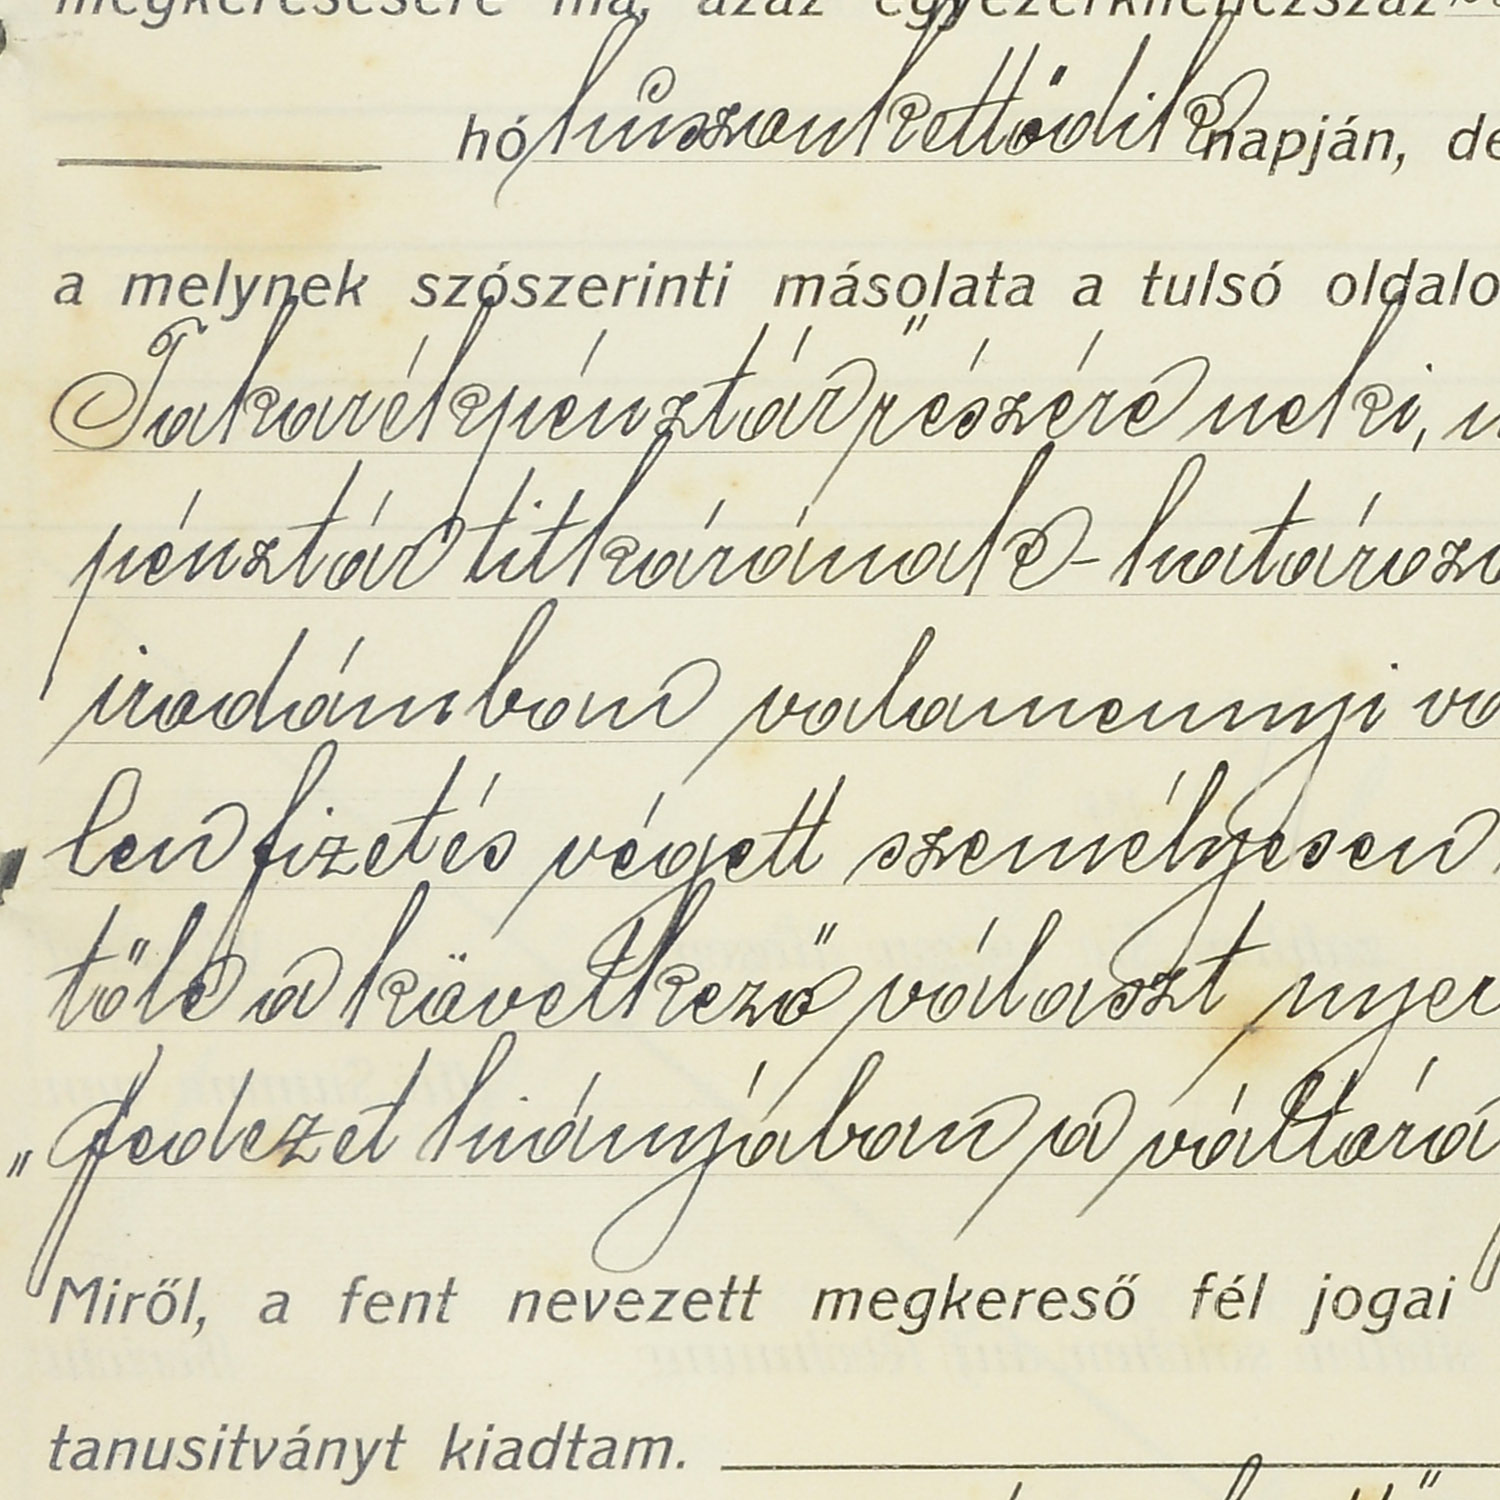 megkeresésére ma, azaz egyezerkilenczszáz
hó huszonkettődik napján, de
a melynek szószerinti másolata a tulsó oldalo
Takarékpénztár" részére neki, u
pénztár titkárának - határozo
irodámban valamennyi vá
len fizetés végett személyesen
től e a következő választ nyer
„fedezet hiányában a váltóra
Miről, a fent nevezett megkereső fél jogai
tanusitványt kiadtam.